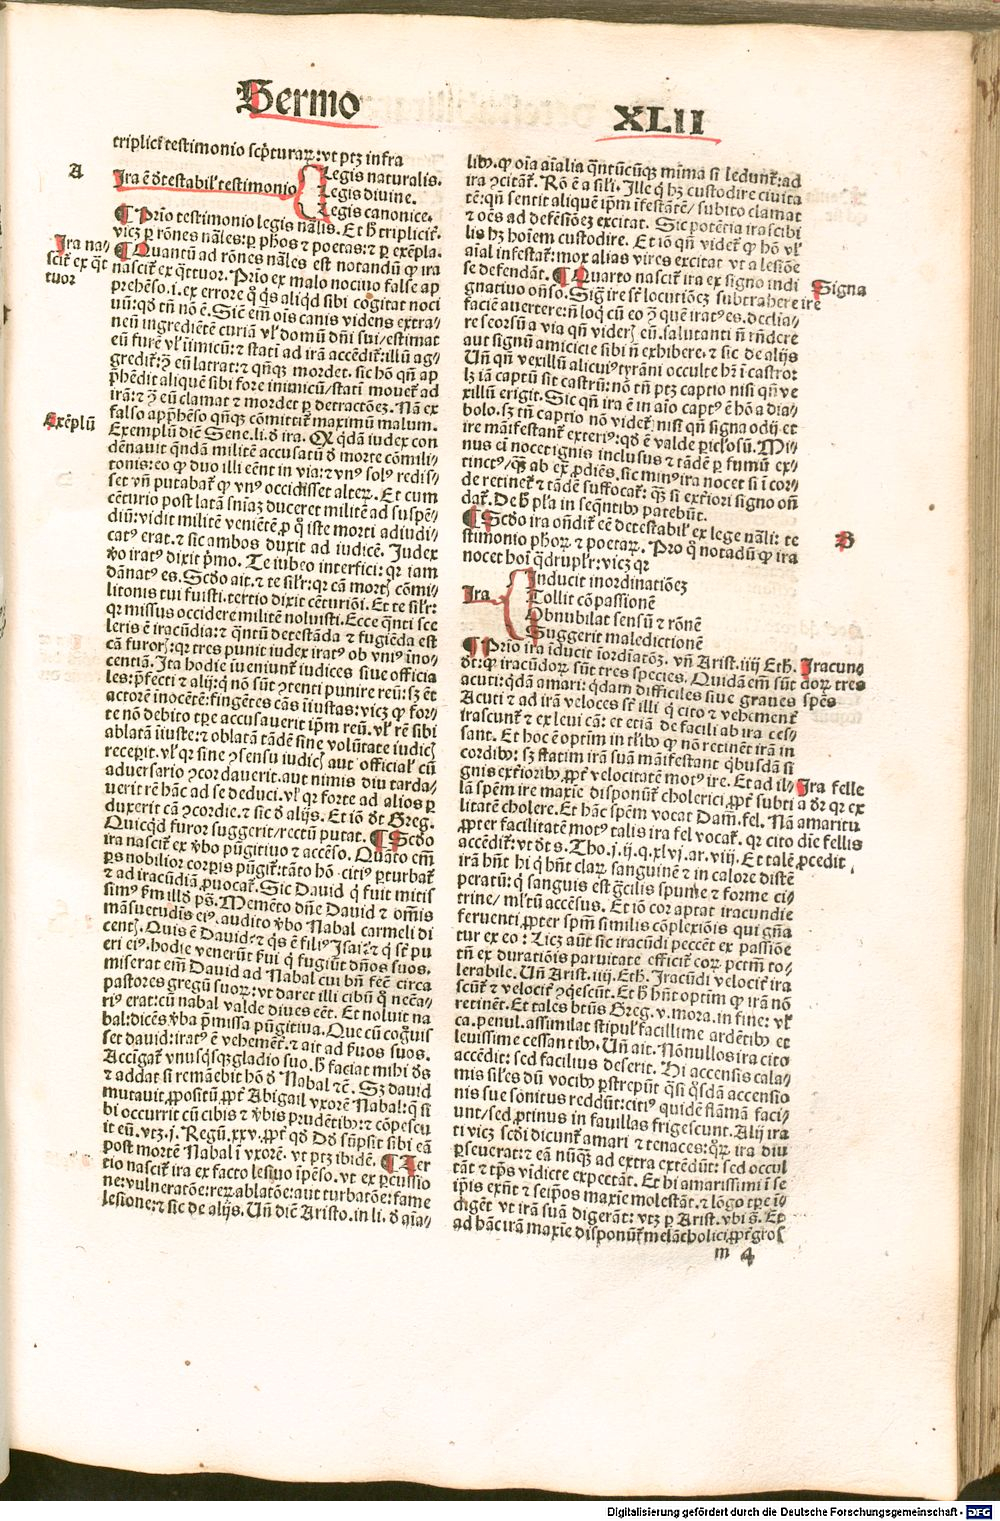 Sermo XLII
triplici testimonio scripturaꝝ: vt ptꝫ infra
A
Ira ē detestabil' testimonio
Legis naturalis.
Legis divine.
Legis canonice.
¶ Prīo testimonio legis nālis. Et h̄ tripliciť.
vicꝫ ꝑ rōnes nāles: ꝑ phōs ⁊ poetas: ⁊ ꝑ exēpla.
¶ Quantū ad rōnes nāles est notandū ꝙ ira
Ira na-
sciť ex q̄t
tuor
nasciť ex q̄ttuor. Prīo ex malo nociuo false ap
prehēso .i. ex errore q̄ q̄s aliqd sibi cogitat noci
uū: qd̄ tn̄ nō ē. Sic em̄ ois canis videns extra-
neū ingrediētē curiā vl' domū dn̄i sui / estimat
eū furē vl' iimicū: ⁊ statī ad irā accēdit: illū ag-
gredit: ⁊ eū latrat: ⁊ qn̄qꝫ mordet. sic hō qn̄ ap
p̄hēdit aliquē sibi fore inimicū / statī mouet ad
irā: ⁊ ꝯ eū clamat ⁊ mordet ꝑ detractōeꝫ. Nā ex
falso app̄hēso qn̄qꝫ cōmittit maximū malum.
Exēplū
Exemplū dic̄ Sene. li. d̄ ira. Qr q̄dā iudex con
dēnauit q̄ndā militē accusatū d̄ morte cōmili-
tonis: eo ꝙ duo illi eēnt in via: ⁊ vnꝰ solꝰ redis-
set vn̄ putabat ꝙ vnꝰ occidisset alterꝝ. Et cum
cēturio post latā sn̄iaꝫ duceret militē ad suspē-
diū: vidit militē veniētē ꝑ q̄ iste morti adiudi-
catꝰ erat. ⁊ sic ambos duxit ad iudicē. Iudex
v̄o iratꝰ dixit p̄mo. Te iubeo interfici: qr iam
dānatꝰ es. Scd̄o ait. ⁊ te silr: qr cā mortꝭ cōmi-
litonis tui fuisti. tertio dixit cēturiōi. Et te silr:
qr missus occidere militē noluisti. Ecce q̄nti sce
leris ē iracūdia: ⁊ q̄ntū detestāda ⁊ fugiēda est
cā furorꝭ: qr tres punit iudex iratꝰ ob vniꝰ ino-
centiā. Ita hodie iueniunt iudices siue officia
les: p̄fecti ⁊ alij: q̄ nō sūt ꝯtenti punire reū: sꝫ ēt
actorē inocētē: fingētes cās iiustas: vicꝫ ꝙ for-
te nō debito tꝑe accusauerit ip̄m reū. vl' rē sibi
ablatā iiuste: ⁊ oblatā tādē sine volūtate iudicꝭ
receperit. vl' qr sine ꝯsensu iudicꝭ aut official' cū
aduersario ꝯcordauerit. aut nimis diu tarda-
uerit rē hāc ad se deduci. vl' qr forte ad alios ꝑ
duxerit cā ꝯcordie. ⁊ sic d̄ alijs. Et iō dt Greg.
Quicqd furor suggerit / rectū putat. ¶ Scd̄o
ira nasciť ex v̄bo pūgitiuo ⁊ accēso. Quāto em̄
ꝑs nobilior corꝑis pūgit: tāto hō citiꝰ ꝑturbať
⁊ ad iracūdiā ꝓuocať. Sic Dauid q̄ fuit mitis
simꝰ ẜm illd̄ ps̄. Memēto dn̄e Dauid ⁊ om̄is
māsuetudis eiꝰ. audito v̄bo Nabal carmeli di
centꝭ. Quis ē Dauid: ⁊ q̄s ē filiꝰ Isai: ⁊ q̄ st̄ pu
eri eiꝰ. hodie venerūt ẜui q̄ fugiūt dn̄os suos.
miserat em̄ Dauid ad Nabal cui bn̄ fec̄ circa
pastores gregū suorꝝ: vt daret illi cibū q̄ necā-
riꝰ erat: cū nabal valde diues eēt. Et noluit na
bal: dicēs v̄ba p̄missa pūgitiua. Que cū cogn̄uis
set dauid: iratꝰ ē vehementer. ⁊ ait ad ẜuos suos.
Accīgať vnusqsqꝫ gladio suo. h̄ faciat mihi d̄s
⁊ addat si remāebit hō d̄ Nabal ⁊c̄. Sꝫ dauid
mutauit ꝓpositū ꝓpť Abigail vxorē Nabal: q̄ si
bi occurrit cū cibis ⁊ v̄bis prudētibꝰ: ⁊ cōpescu
it eū. vtꝫ .j. Regū. xxv. ꝓpť qd̄ Dd̄ sūpsit sibi eā
post mortē Nabal ī vxorē. vt ptꝫ ibidē. ¶ Ter
tio nasciť ira ex facto lesiuo īpēso. vt ex ꝑcussio
ne: vulneratōe: reꝝ ablatōe: aut turbatōe: fame
lesione: ⁊ sic de alijs. Un̄ dic̄ Aristo. in li. d̄ aīa-
libꝰ. ꝙ oīa aīalia q̄ntūcūqꝫ mīma si ledunť: ad
ira ꝯcitāť. Rō ē a sil'i. Ille q̄ hꝫ custodire ciuita
tē: qn̄ sentit aliquē ip̄m ifestātē / subito clamat
⁊ oēs ad defēsiōeꝫ excitat. Sic potētia irascibi
lis hꝫ hoīem custodire. Et iō qn̄ videt ꝙ hō vl'
aīal infestať: mox alias vires excitat vt a lesiōe
se defendāt. ¶ Quarto nasciť ira ex signo indi
Signa
gnatiuo ōn̄so. Sigꝫ ire st̄ locutiōeꝫ subtrahere ire
faciē auertere: n̄ loq̄ cū eo ꝯ quē iratꝰ es. declia-
re seorsū a via qn̄ viderꝭ eū. salutanti n̄ rn̄dere
aut signū amicicie sibi n̄ exhibere. ⁊ sic de alijs
Un̄ qn̄ vexillū alicuiꝰ tyrāni occulte hr̄ ī castro:
lꝫ iā captū sit castrū: nō tn̄ ptꝫ captio nisi qn̄ ve
xillū erigit. Sic qn̄ ira ē in aīo captꝰ ē hō a dia-
bolo. sꝫ tn̄ captio nō videť nisi qn̄ signa odij et
ire māifestanť exteriꝰ: qd̄ ē valde ꝑicl'osū. Mi-
nus ei nocet ignis inclusus ⁊ tādē ꝑ fumū ex-
tinctꝰ / q̄ꝫ ab exꝰ ꝓdiēs. sic minꝰ ira nocet si ī cor-
de retineť ⁊ tādē suffocať: q̄ꝫ si exteriori signo on̄
dať. De h̄ pl'a in seq̄ntibꝰ patebūt.
¶ Scd̄o ira on̄diť eē detestabil' ex lege nāli: te
B
stimonio phorꝝ ⁊ poetarꝝ. Pro q̄ notadū ꝙ ira
nocet hoī q̄drupl'r: vicꝫ qr
Ira
Inducit inordinatiōeꝫ
Tollit cōpassionē
Obnubilat sensū ⁊ rōnē
Suggerit maledictionē
¶ Prīo ira īducit īordiatōeꝫ. vn̄ Arist. iiij Eth.
Iracuno
dorꝝ tres
spēs
dt: ꝙ iracūdorꝝ sūt tres species. Quidā em̄ sūt
acuti: q̄dā amari: q̄dam difficiles siue graues
Acuti ⁊ ad irā veloces st̄ illi q̄ cito ⁊ vehementer
irascunť ⁊ ex leui cā: et etiā de facili ab ira ces-
sant. Et hoc ē optim̄ in tal'ibꝰ ꝙ nō retinēt irā in
cordibꝰ: sꝫ statim irā suā māifestant q̄busdā si
gnis exteriōribꝰ ꝓpť velocitatē motꝰ ire. Et ad il-
Ira felle
a dr qr ex
amaritu
die fellis
ꝓcedit
lā spēm ire maxīe disponunť cholerici ꝓpť subti
litatē cholere. Et hāc spēm vocat Dam̄. fel. Nā
ꝓpter facilitatē motꝰ talis ira fel vocať. qr cito
accēdiť: vt dt s. Tho. j. ij. q. xlvj. ar. viij. Et talē
irā hn̄t hi q̄ hn̄t clarꝝ sanguinē ⁊ in calore distē
peratū: q̄ sanguis est gracilis spume ⁊ forme ci-
trine / ml'tū accēsus. Et iō cor aptat iracundie
feruenti ꝓpter spm̄ similis cōplexiōis qui gn̄a
tur ex eo: Licꝫ aūt sic iracūdi peccēt ex passiōe
tn̄ ex duratiōis paruitate efficiť eorꝝ pctm̄ to-
lerabile. Un̄ Arist. iiij. Eth. Iracūdi velociť ira
scūť ⁊ velociť ꝯqescūt. Et h̄ hn̄t optim̄ ꝙ irā nō
retinēt. Et tales btūs Greg. v. mora. in fine: vl'
ca. penul. assimilat stipul' facillime ardētibꝰ et
leuissime cessantibꝰ. Un̄ ait. Nōnullos ira cito
accēdit: sed facilius deserit. Hi accensis cala-
mis sil'es dū vocibꝰ ꝑstrepūt q̄si q̄sdā accensio
nis sue sonitus reddūt: citiꝰ quidē flāmā faci-
unt / sed ꝓtinus in fauillas frigescunt. Alij ira
ti vicꝫ scd̄i dicunť amari ⁊ tenaces: q̄rꝝ ira diu
ꝑseuerat: ⁊ eā nūqꝫ ad extra extēdūt: sed occul
tāt ⁊ tꝑs vidicte expectāt. Et hi amarissimi ī se
ip̄is exn̄t ⁊ seip̄os maxīe molestāt. ⁊ lōgo tꝑe ī-
digēt vt irā suā digerāt: vtꝫ ꝑ Arist. vbi s̄. Et
ad hāc irā maxīe disponunť melācholici ꝓpť gros
m 4
Digitalisierung gefördert durch die Deutsche Forschungsgemeinschaft - DFG